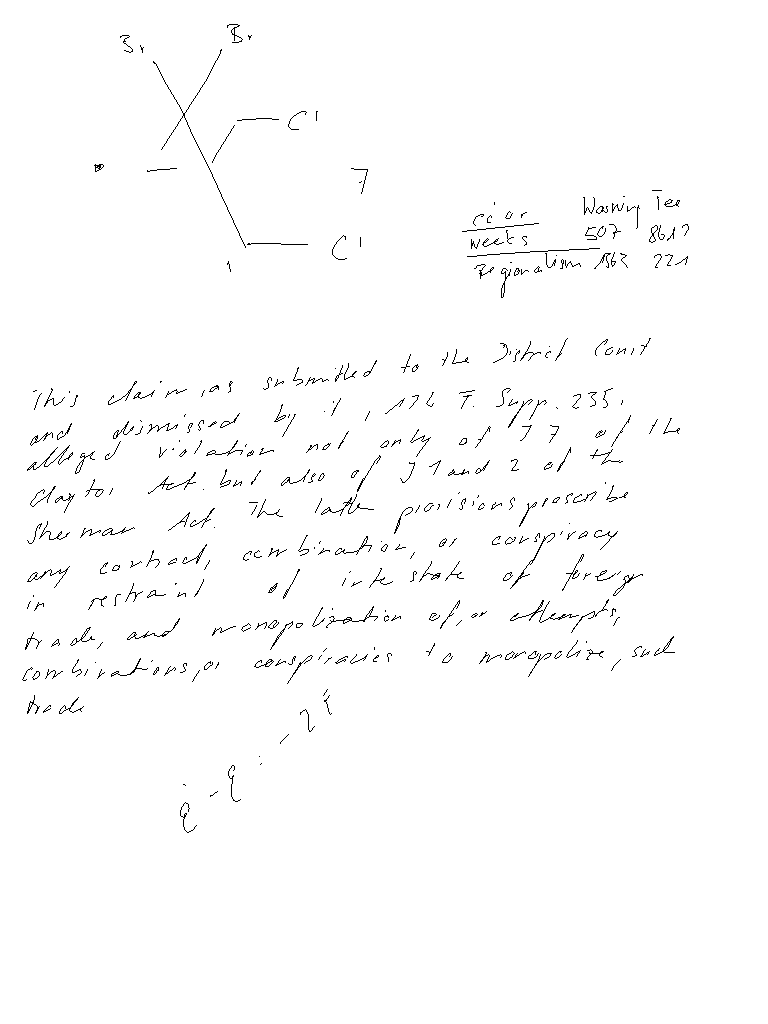 Br Br
Cl
7
Cl
1
Washing Tee
weeks 507
Regionalism 221
This claim, as submitted to the District Court
and dismissed by it, 172 F. Supp. 235,
alleged violation not only of § 7 of the
Clayton Act. but also of § 1 and 2 of the
Sherman Act. The latter provisions proscribe
any contract, combination, or conspiracy
in restraint of interstate of foreign
trade, and monopolization of, or attempts,
combinations, or conspiracies to monopolize, such
trade